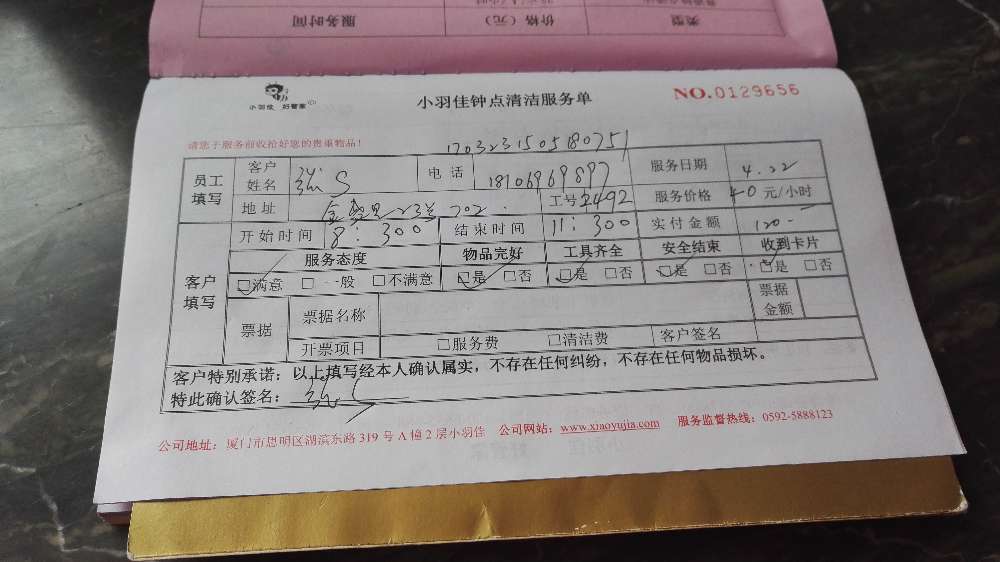 类型 价格（元） 服务时间
小羽佳 好管家
小羽佳钟点清洁服务单
NO.0129656
请您于服务前收拾好您的贵重物品！
1703231505180751
员工填写 客户姓名 S 电话 18106969897 服务日期 4.22
地址 702 工号 2492 服务价格 40 元/小时
客户填写 开始时间 8:300 结束时间 11:300 实付金额 120-
服务态度 物品完好 工具齐全 安全结束 收到卡片
□满意 □一般 □不满意 □是 □否 □是 □否 □是 □否 □是 □否
票据 票据名称 票据金额
开票项目 □服务费 □清洁费 客户签名
客户特别承诺：以上填写经本人确认属实，不存在任何纠纷，不存在任何物品损坏。
特此确认签名：
公司地址：厦门市思明区湖滨东路 319 号 A 幢 2 层小羽佳 公司网站：www.xiaoyujia.com 服务监督热线：0592-5888123